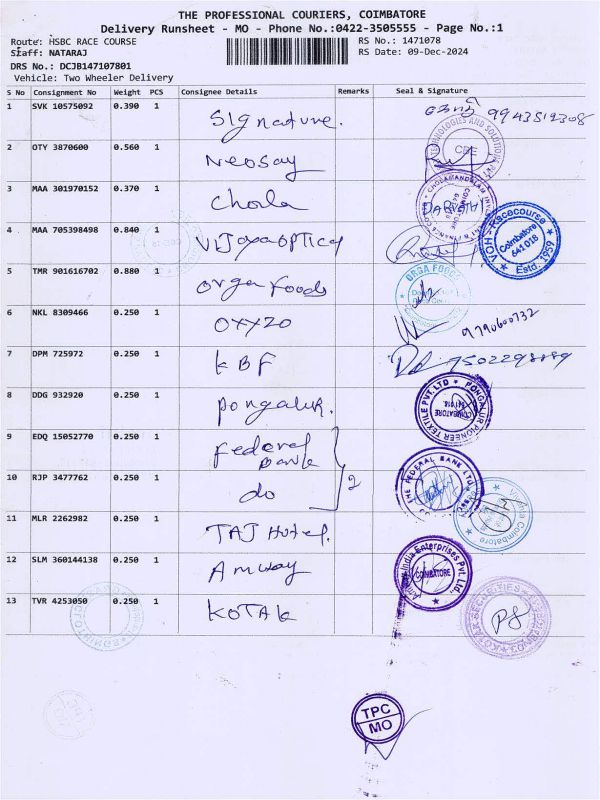 THE PROFESSIONAL COURIERS, COIMBATORE
Delivery Runsheet - MO - Phone No.:0422-3505555 - Page No.:1
Route: HSBC RACE COURSE
RS No.: 1471078
Staff: NATARAJ
RS Date: 09-Dec-2024
DRS No.: DCJB147107801
Vehicle: Two Wheeler Delivery
S No Consignment No Weight PCS Consignee Details Remarks Seal & Signature
1 SVK 10575092 0.390 1 Signature. 9943512308
TECHNOLOGIES AND SOLUTIONS PVT.
CBE
2 OTY 3870600 0.560 1 Neosay
3 MAA 301970152 0.370 1 Chola
CHOLAMANDALAM
DARVATHI
4 MAA 705398498 0.840 1 Vijaya optical
Racecourse
Coimbatore
641 018
Estd. 1959
5 TMR 901616702 0.880 1 Orga foods
ORGA FOODS
6 NKL 8309466 0.250 1 OXYZO 9790600732
7 DPM 725972 0.250 1 KBF 7502298889
8 DDG 932920 0.250 1 Pongalur.
PONGALUR PIONEER TEXTILE PVT. LTD
COIMBATORE
641 018.
9 EDQ 15052770 0.250 1 Federal Bank
2
THE FEDERAL BANK LTD.
10 RJP 3477762 0.250 1 do
Coimbatore
11 MLR 2262982 0.250 1 TAJ Hotel.
12 SLM 360144138 0.250 1 Amway
India Enterprises Pvt. Ltd.
COIMBATORE
13 TVR 4253050 0.250 1 KOTAK
KOTAK SECURITIES
TPC
MO